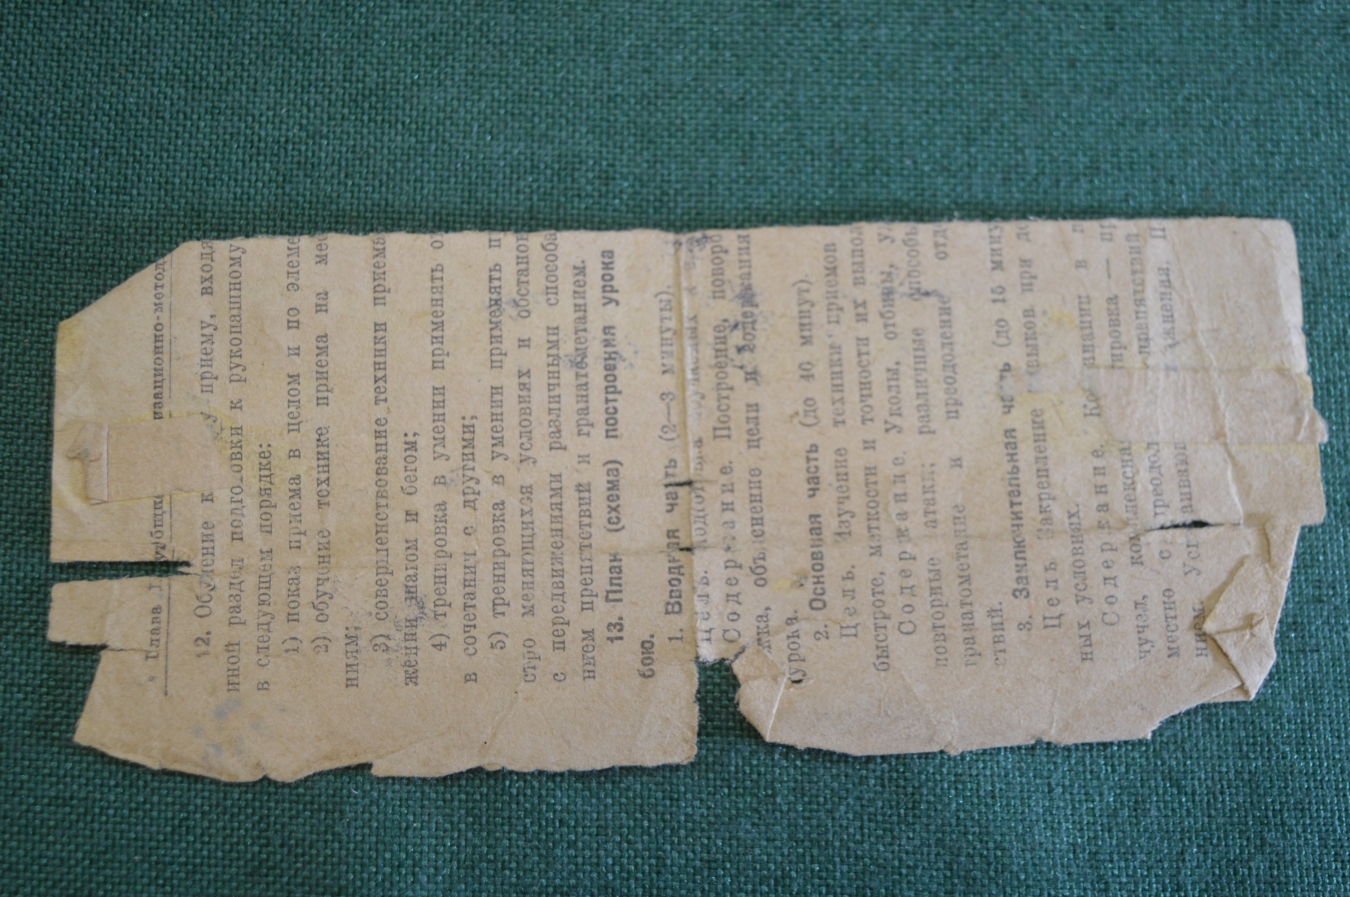 Глава
изационно-метод
12. Обучение к приему, входя
иной раздел подготовки к рукопашному
в следующем порядке:
1) показ приема в целом и по элеме
2) обучение технике приема на мес
ниям;
3) совершенствование техники приема
жении шагом и бегом;
4) тренировка в умении применять от
в сочетании с другими;
5) тренировка в умении применять пр
стро меняющихся условиях и обстанов
с передвижениями различными способа
нием препятствий и гранатометанием.
13. План (схема) построения урока
бою.
1. Вводная часть (2—3 минуты).
Цель.
Содержание. Построение, поворо
объяснение цели и содержания
урока.
2. Основная часть (до 40 минут).
Цель. Изучение техники приемов
быстроте, меткости и точности их выпол
Содержание. Уколы, отбивы, уд
повторные атаки; различные способы
гранатометание и преодоление отде
ствий.
3. Заключительная часть (до 15 мину
Цель. Закрепление навыков при де
ных условиях.
Содержание.
чучел,
местно с